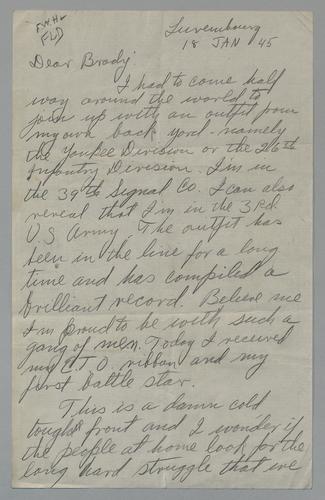 F.W.H.
FLD
Luxembourg
18 JAN 45
Dear Brady
I had to come half
way around the world to
join up with an outfit from
my own back yard - namely
the Yankee Division or the 26th
Infantry Division. I'm in
the 39th Signal Co. I can also
reveal that I'm in the 3 Rd.
U.S. Army. The outfit has
been in the line for a long
time and has compiled a
brilliant record. Believe me
I'm proud to be with such a
gang of men. Today I received
my E.T.O. ribbon and my
first battle star.
This is a damn cold
tough front and I wonder if
the people at home look for the
long hard struggle that we